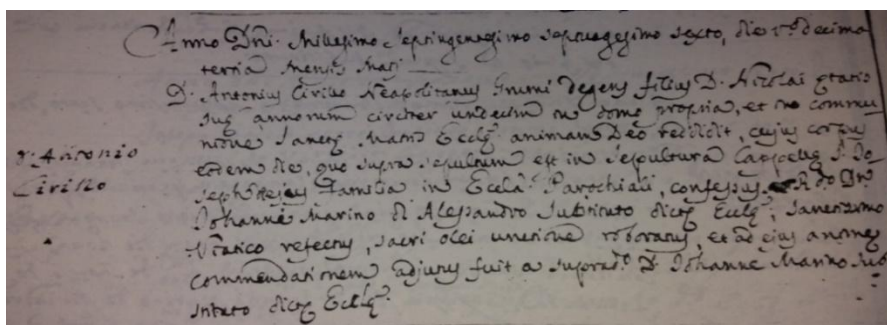 Anno Dni. Millesimo Septingentesimo septuagesimo sexto, die v.o decima
tertia mensis Maij
D. Antonius Cirillo Neapolitanus Grumi degens filius D. Nicolai etatis
suę annorum circiter undecim in domo propria, et in commu-
nione Sanctę Matris Ecclę animam Deo reddidit, cujus corpus
eodem die, quo supra sepultum est in sepultura Cappellę S. Jo-
seph ejus familia in Eccla. Parochiali, confessus R.do Dn.
Johanne Marino di Alessandro substituto dictę Ecclę, Sanctissimo
Viatico refectus, sacri olei unctione roboratus, et ad ejus animę
commendationem adjutus fuit a suprad.o D. Johanne Marino sub
stituto dictę Ecclę.
D. Antonio
Cirillo